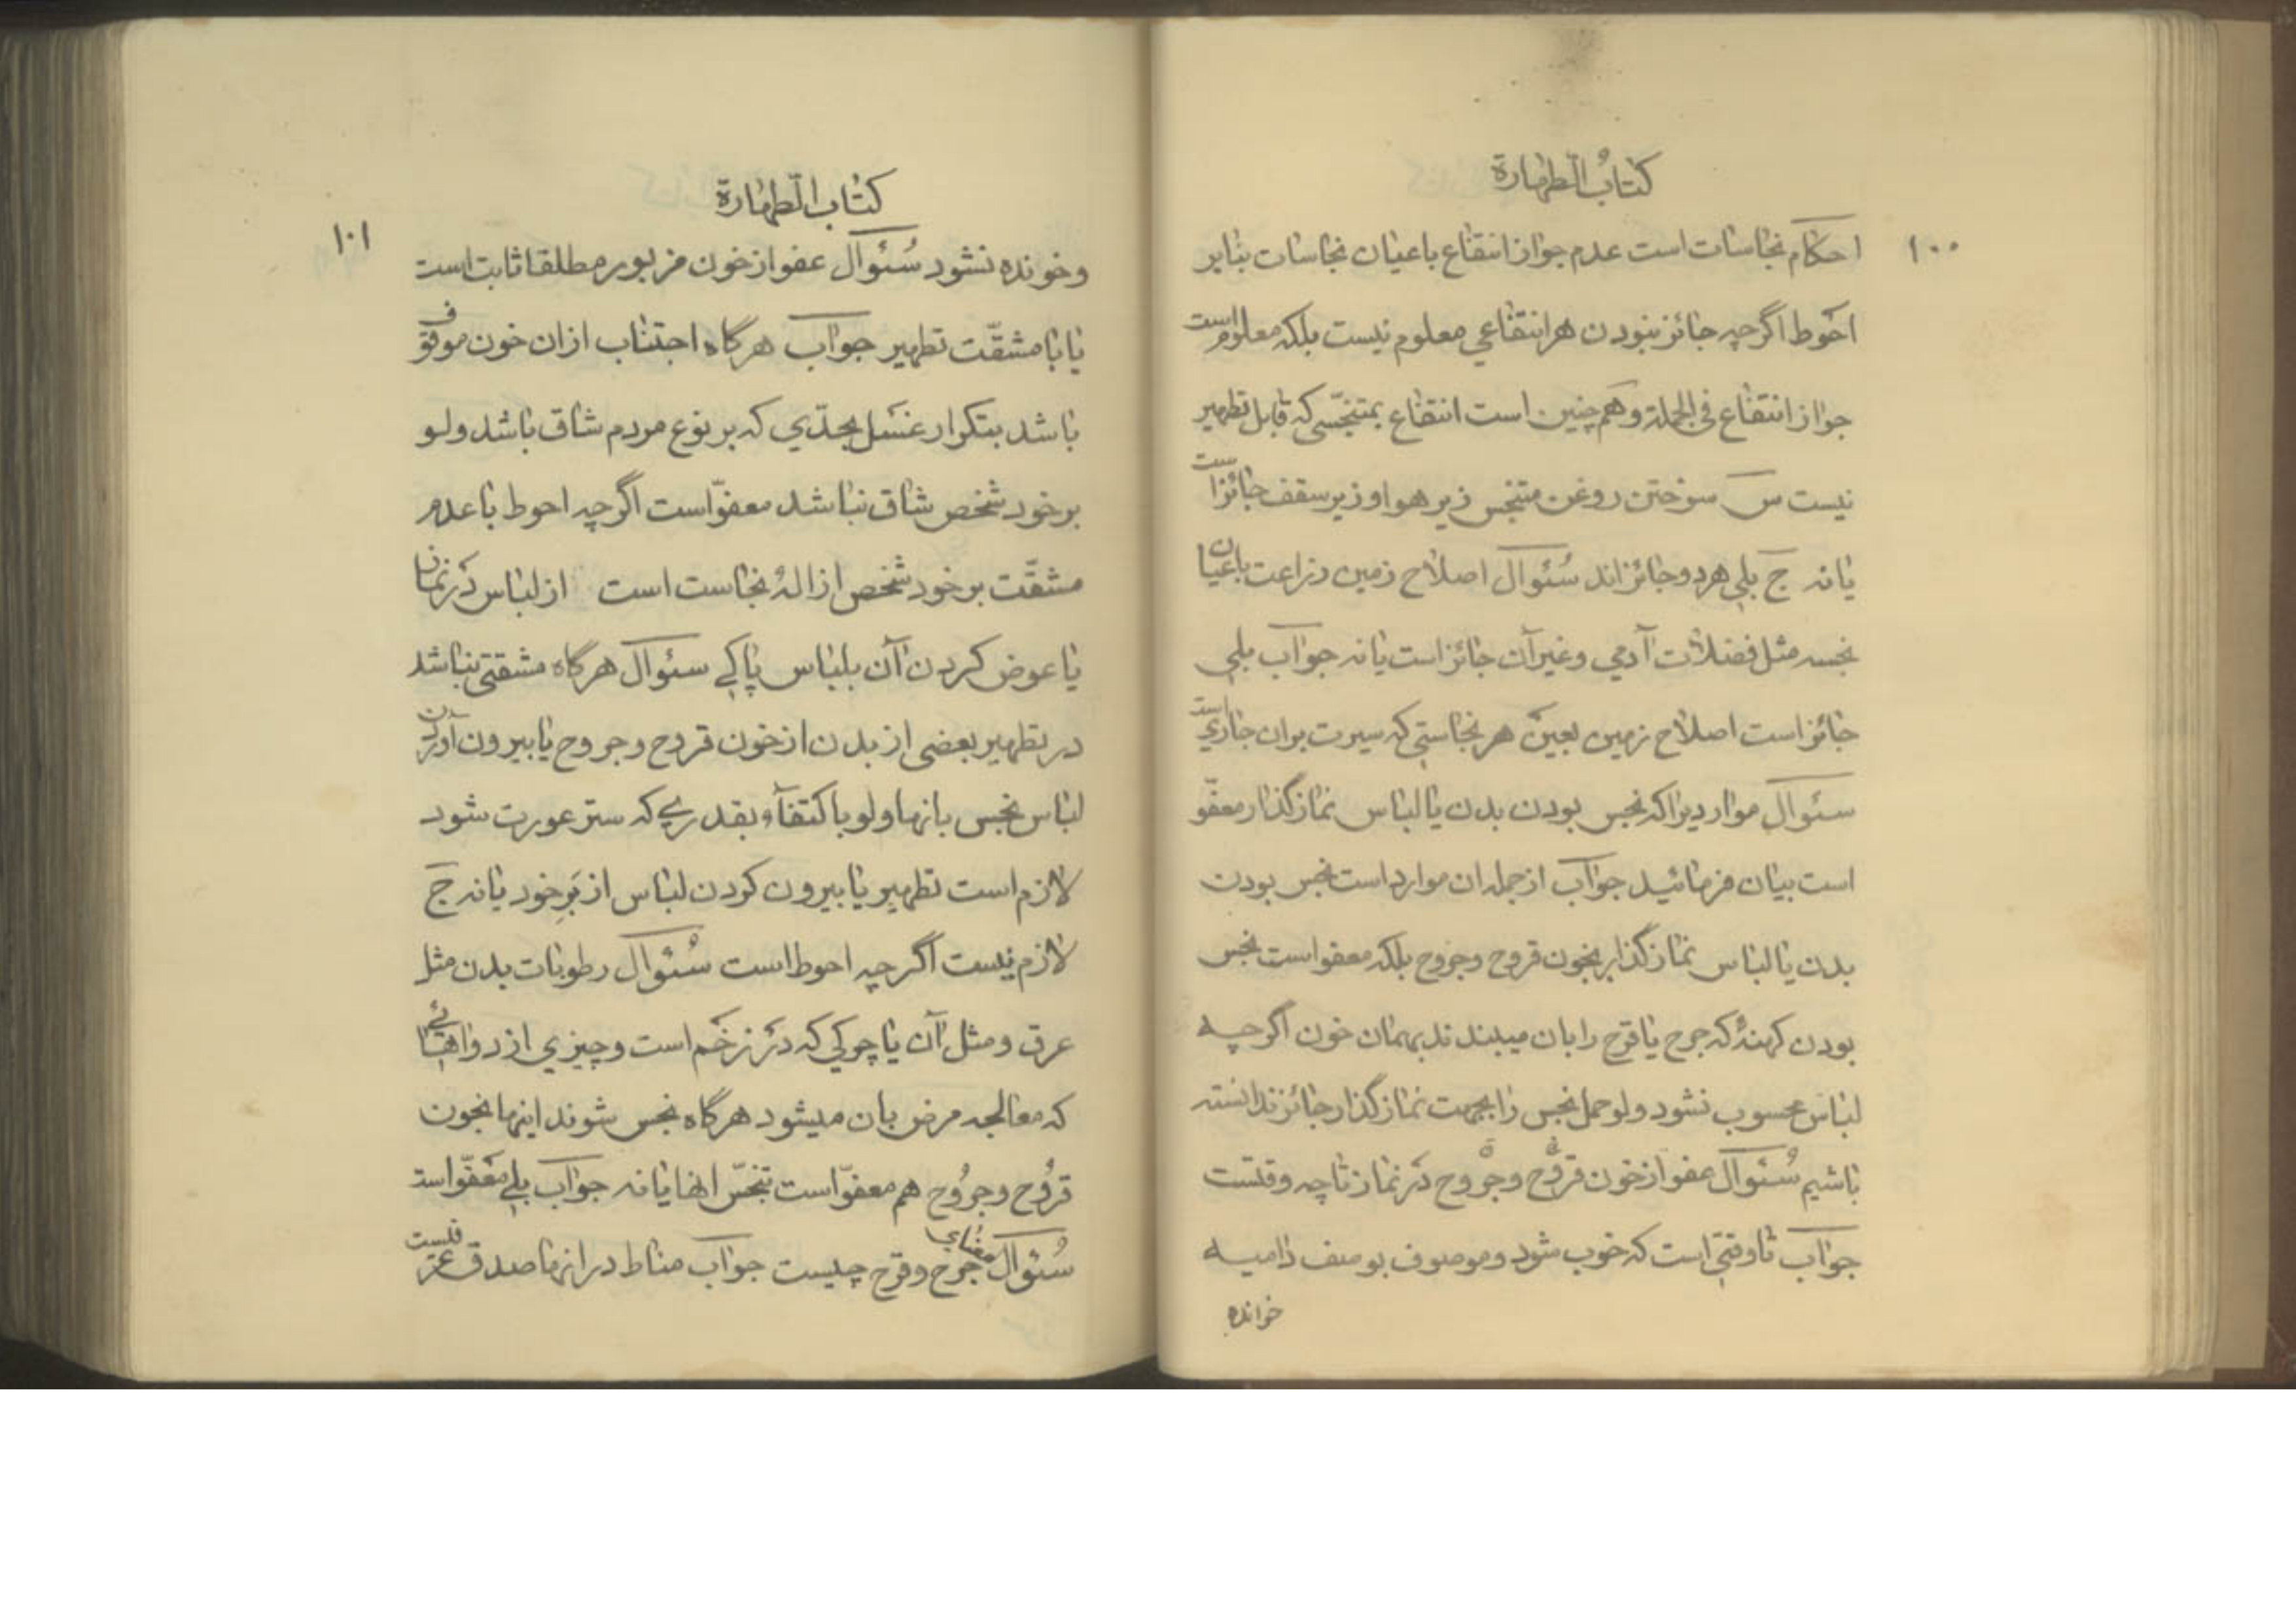 كتاب الطهارة
١٠٠
احكام نجاسات است عدم جواز انتفاع باعيان نجاسات بنابر
احوط اگرچه جائز نبودن هر انتفاعي معلوم نيست بلكه معلوم است
جواز انتفاع في الجملة و هم چنين است انتفاع بمتنجّسي كه قابل تطهير
نيست س سوختن روغن متنجس زير هوا و زير سقف جائز است
يا نه ج بلي هر دو جائزاند سُئوال اصلاح زمين زراعت باعيان
نجسه مثل فضلات آدمي و غير آن جائز است يا نه جواب بلي
جائز است اصلاح زمين بعين هر نجاستي كه سيرت بران جاري است
سئوال مواردي را كه نجس بودن بدن يا لباس نماز گذار معفوّ
است بيان فرمائيد جواب از جمله ان موارد است نجس بودن
بدن يا لباس نماز گذار بخون قروح و جروح بلكه معفو است نجس
بودن كهنهٔ كه جرح يا قرح را بان ميبندند بهمان خون اگرچه
لباس محسوب نشود ولو حمل نجس را بجهت نماز گذار جائز ندانسته
باشيم سُئوال عفو از خون قروح و جروح در نماز تا چه وقتست
جواب تا وقتي است كه خوب شود و موصوف بوصف داميه
خوانده
كتاب الطهارة
١٠١
و خونده نشود سُئوال عفو از خون مزبور مطلقا ثابت است
يا با مشقّت تطهير جواب هرگاه اجتناب از ان خون موقوف
باشد بتكرار غسل بحدّي كه بر نوع مردم شاق باشد ولو
بر خود شخص شاق نباشد معفوّ است اگرچه احوط با عدم
مشقّت بر خود شخص ازالهٔ نجاست است از لباس در نماز
يا عوض كردن آن بلباس پاكي سئوال هرگاه مشقتي نباشد
در تطهير بعضي از بدن از خون قروح و جروح يا بيرون آوردن
لباس نجس بانها ولو باكتفاء بقدري كه ستر عورت شود
لازم است تطهير يا بيرون كردن لباس از بَرِ خود يا نه ج
لازم نيست اگرچه احوط است سُئوال رطوبات بدن مثل
عرق و مثل آن يا چركي كه در زخم است و چيزي از دواهائي
كه معالجه مرض بان ميشود هرگاه نجس شوند اينها بخون
قروح و جروح هم معفوّ است تنجّس انها يا نه جواب بلي معفوّ است
سُئوال معناي جرح و قرح چيست جواب مناط در انها صدق عرفيست